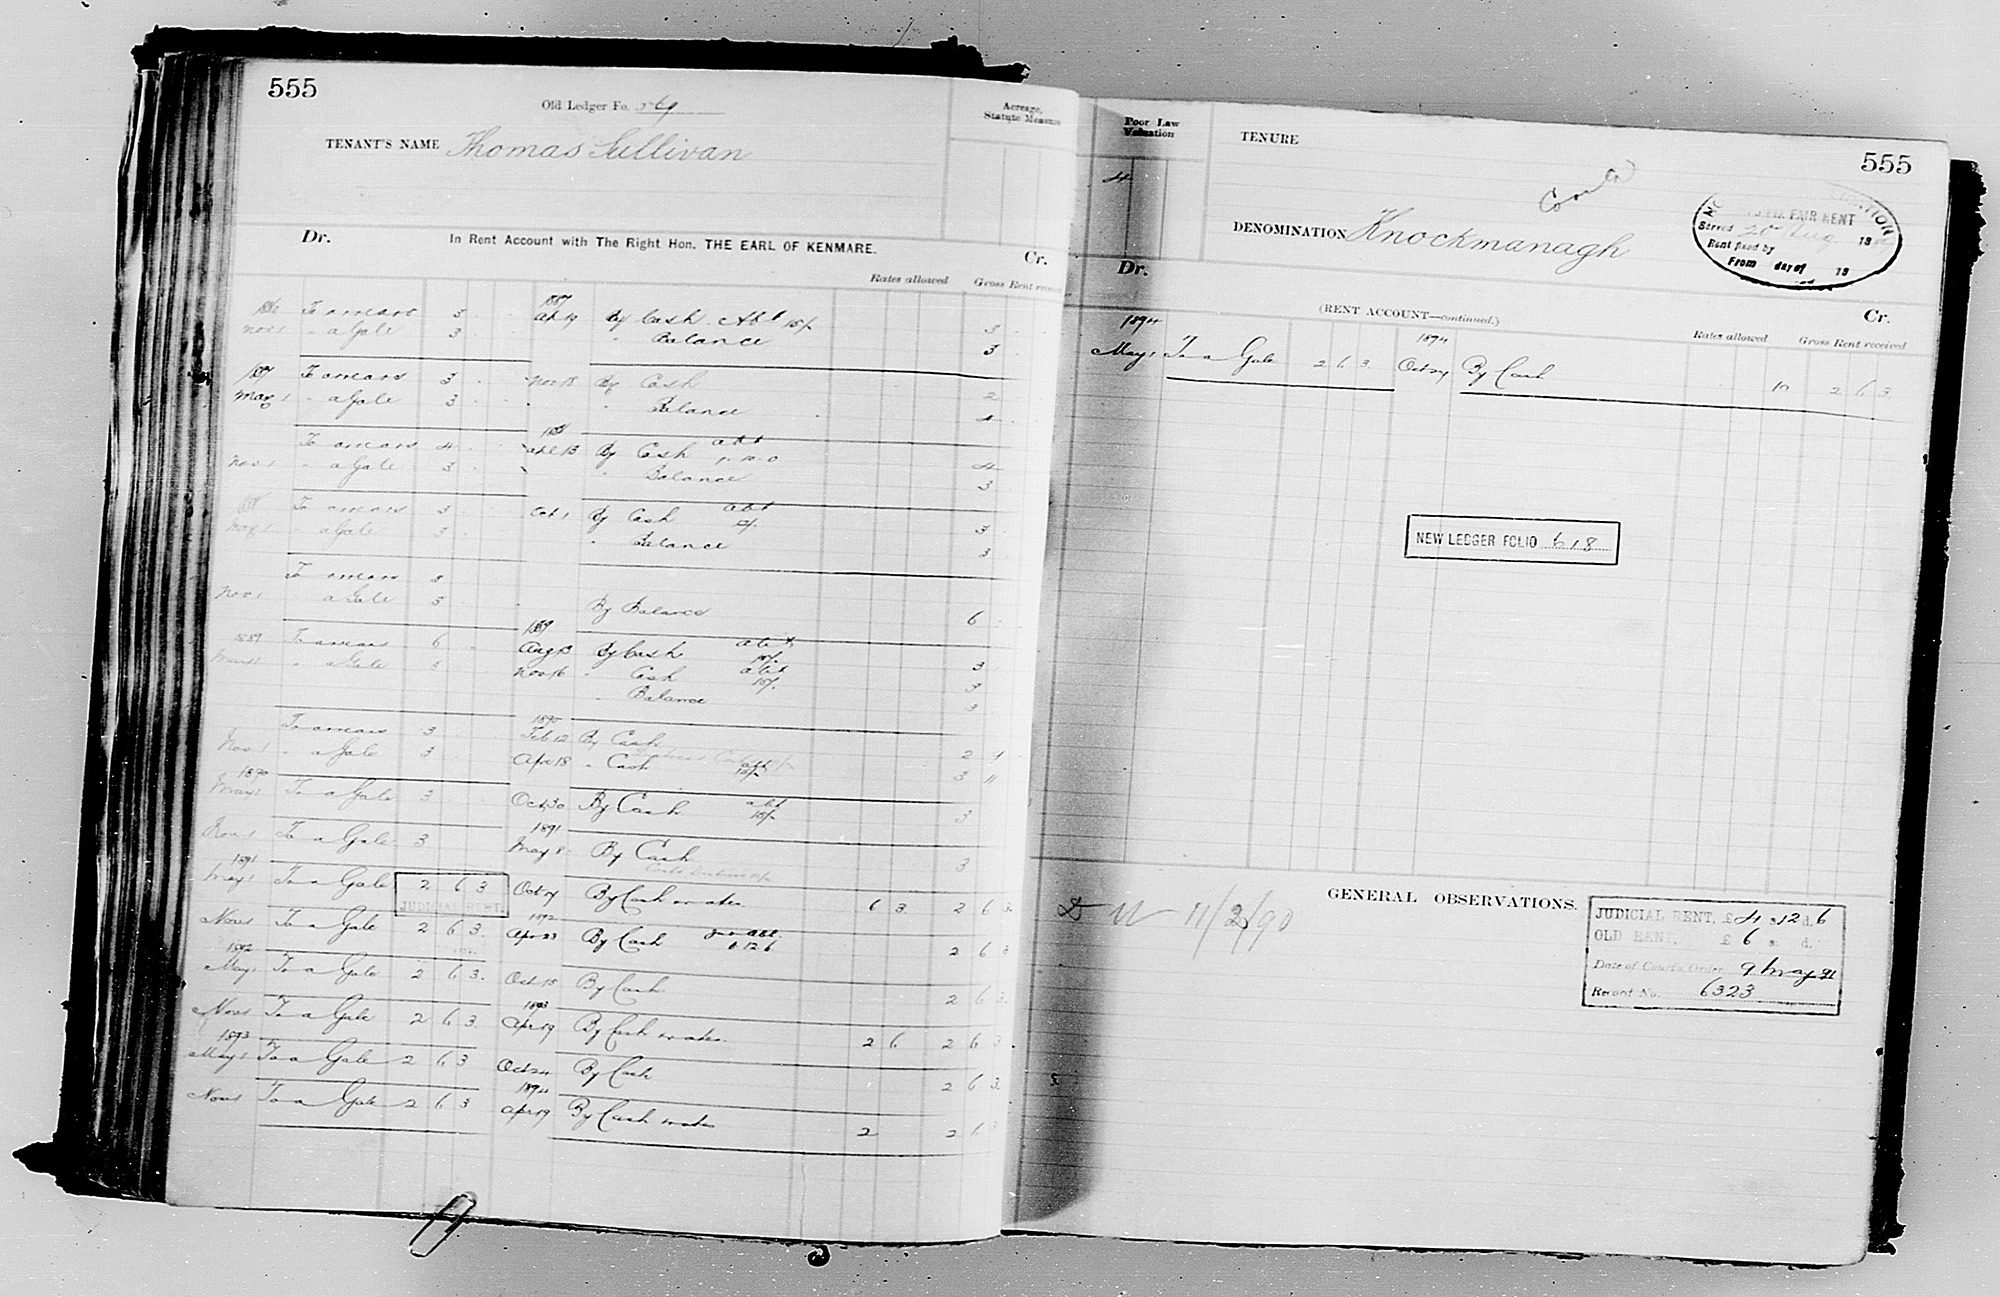 555
Old Ledger Fo.
Acreage, Statute Measure
TENANT'S NAME Thomas Sullivan
Dr. In Rent Account with The Right Hon. THE EARL OF KENMARE. Cr.
Rates allowed Gross Rent received
1886 To arrears 3 1887 Apl 19 By Cash Abt 15/- 3
Nov 1 " a Gale 3 " Balance 3
1887 To arrears 3 Nov 18 By Cash 2
May 1 " a Gale 3 " Balance 4
To arrears 4 1888 Apl 13 By Cash abt 1.10.0 4
Nov 1 " a Gale 3 " Balance 3
1888 To arrears 3 Oct 1 By Cash abt 3
" a Gale 3 " Balance 3
To arrears 3
Nov 1 a Gale 3 By Balance 6
1889 To arrears 6 1889 Aug 13 By Cash abt 3
May 1 " a Gale 3 Nov 16 " Cash abt 15/- 3
" Balance 3
To arrears 3 1890 Feb 12 By Cash 2
Nov 1 " a Gale 3 Apr 18 " Cash abt 3
1890 May 1 To a Gale 3 Oct 30 By Cash abt 15/- 3
Nov 1 To a Gale 3 1891 May 8 By Cash 3
1891 May 1 To a Gale 2 6 3 By Cash & rates 6 3 2 6 3
JUDICIAL RENT.
Nov 1 To a Gale 2 6 3 1892 Apr 23 By Cash 2 6 3
1892 May 1 To a Gale 2 6 3 Oct 15 By Cash 2 6 3
Nov 1 To a Gale 2 6 3 1893 Apr 19 By Cash & rates 2 6 2 6 3
1893 May 1 To a Gale 2 6 3 Oct 24 By Cash 2 6 3
Nov 1 To a Gale 2 6 3 1894 Apr 19 By Cash & rates 2 2 6 3
Poor Law Valuation
TENURE
555
4
DENOMINATION Knockmanagh
FAIR RENT
Served 20 Aug. 18
Rent fixed by
From day of 18
Dr. (RENT ACCOUNT—continued.) Cr.
Rates allowed Gross Rent received
1894 1894
May 1 To a Gale 2 6 3 Oct 24 By Cash 10 2 6 3
NEW LEDGER FOLIO 618
GENERAL OBSERVATIONS.
11/2/90
JUDICIAL RENT. £4 s12 d.6
OLD RENT. £6 s. d.
Date of Court's Order 9 May 91
Record No. 6323